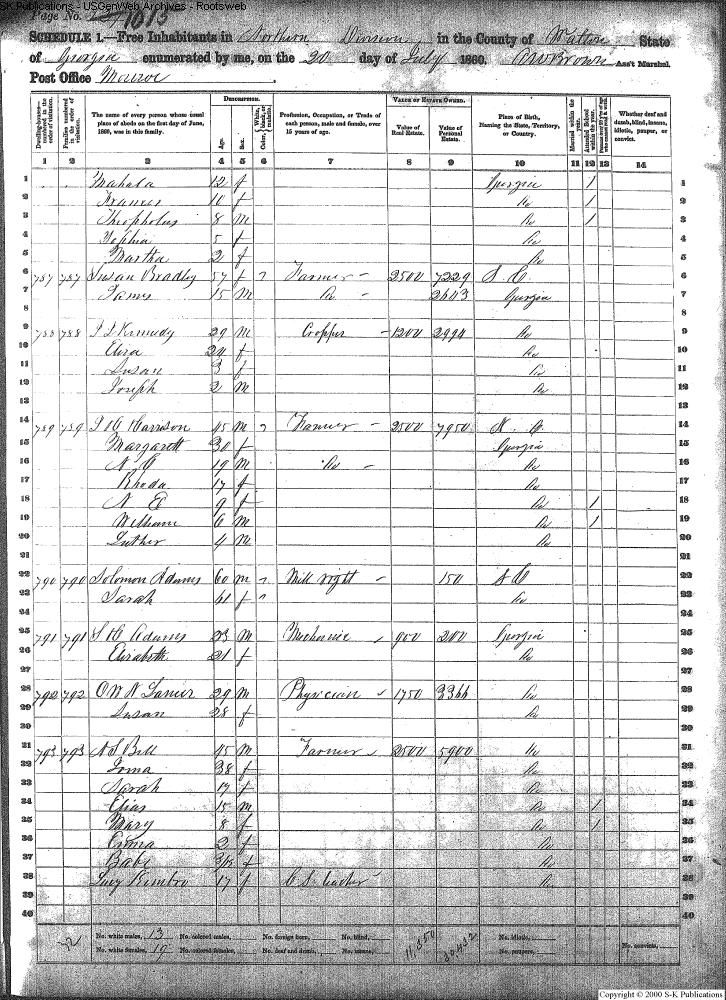 S-K Publications - USGenWeb Archives - Rootsweb
Page No. 1015
SCHEDULE 1.—Free Inhabitants in Northern Division in the County of Walton State
of Georgia enumerated by me, on the 30 day of July 1860. Ass't Marshal.
Post Office Monroe
DESCRIPTION. VALUE OF ESTATE OWNED.
Dwelling-houses—numbered in the order of visitation. Families numbered in the order of visitation. The name of every person whose usual place of abode on the first day of June, 1860, was in this family. Age. Sex. Color, White, black, or mulatto. Profession, Occupation, or Trade of each person, male and female, over 15 years of age. Value of Real Estate. Value of Personal Estate. Place of Birth, Naming the State, Territory, or Country. Married within the year. Attended School within the year. Whether deaf and dumb, blind, insane, idiotic, pauper, or convict.
1 2 3 4 5 6 7 8 9 10 11 12 13 14
1 Mahala 12 f Georgia / 1
2 Frances 10 f Do / 2
3 Theopholus 8 m Do / 3
4 5 f Do 4
5 Martha 2 f Do 5
6 787 787 Susan Bradley 57 f Farmer 2500 7229 S. C. 6
7 James 15 m Do 2643 Georgia 7
8 8
9 788 788 Kennedy 29 m Cropper 1200 2994 Do 9
10 Eliza 24 f Do 10
11 Susan 3 f Do 11
12 Joseph 2 m Do 12
13 13
14 789 789 Harrison 45 m Farmer 2500 7950 14
15 Margarett 30 f Georgia 15
16 19 m Do Do 16
17 Rhoda 17 f Do 17
18 N E 9 f Do / 18
19 William 6 m Do / 19
20 Luther 4 m Do 20
21 21
22 790 790 Solomon Adams 60 m Mill right 150 S C 22
23 Sarah 61 f Do 23
24 24
25 791 791 Adams 23 m Mechanic 900 200 Georgia 25
26 Elizabeth 21 f Do 26
27 27
28 792 792 O W N Lanier 29 m Physician 1750 3366 Do 28
29 Susan 28 f Do 29
30 30
31 793 793 N S Bell 45 m Farmer 2500 5900 Do 31
32 38 f Do 32
33 Sarah 17 f Do 33
34 Elias 15 m Do / 34
35 Mary 8 f Do / 35
36 Emma 2 f Do 36
37 Babe f Do 37
38 Lucy Kimbro 17 f C S teacher Do 38
39 39
40 40
No. white males, 13 No. colored males, No. foreign born, No. blind, No. idiotic,
No. white females, 19 No. colored females, No. deaf and dumb, No. insane, No. paupers, No. convicts,
32
11,850 30,432
Copyright © 2000 S-K Publications